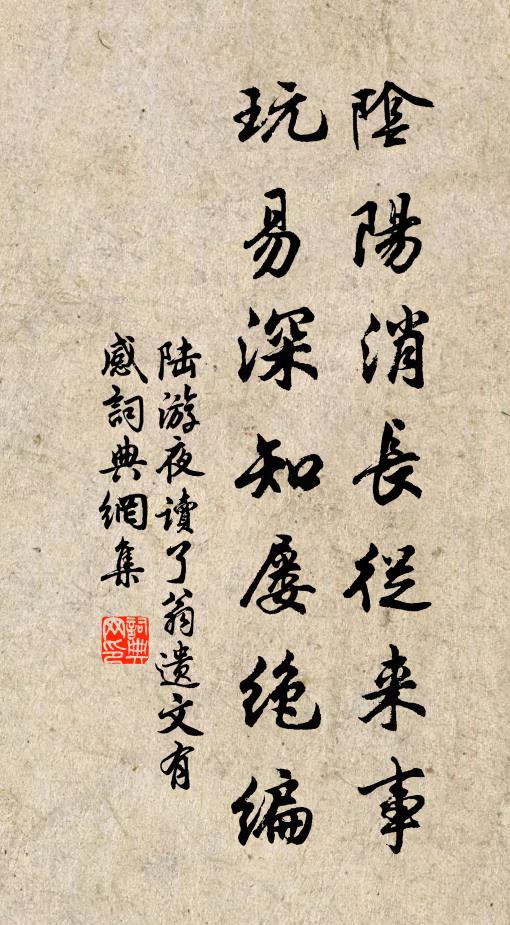 陰陽消長從来事
玩易深知屡絶編
陆游夜讀了翁遗文有
感詞典網集
詞典
网印